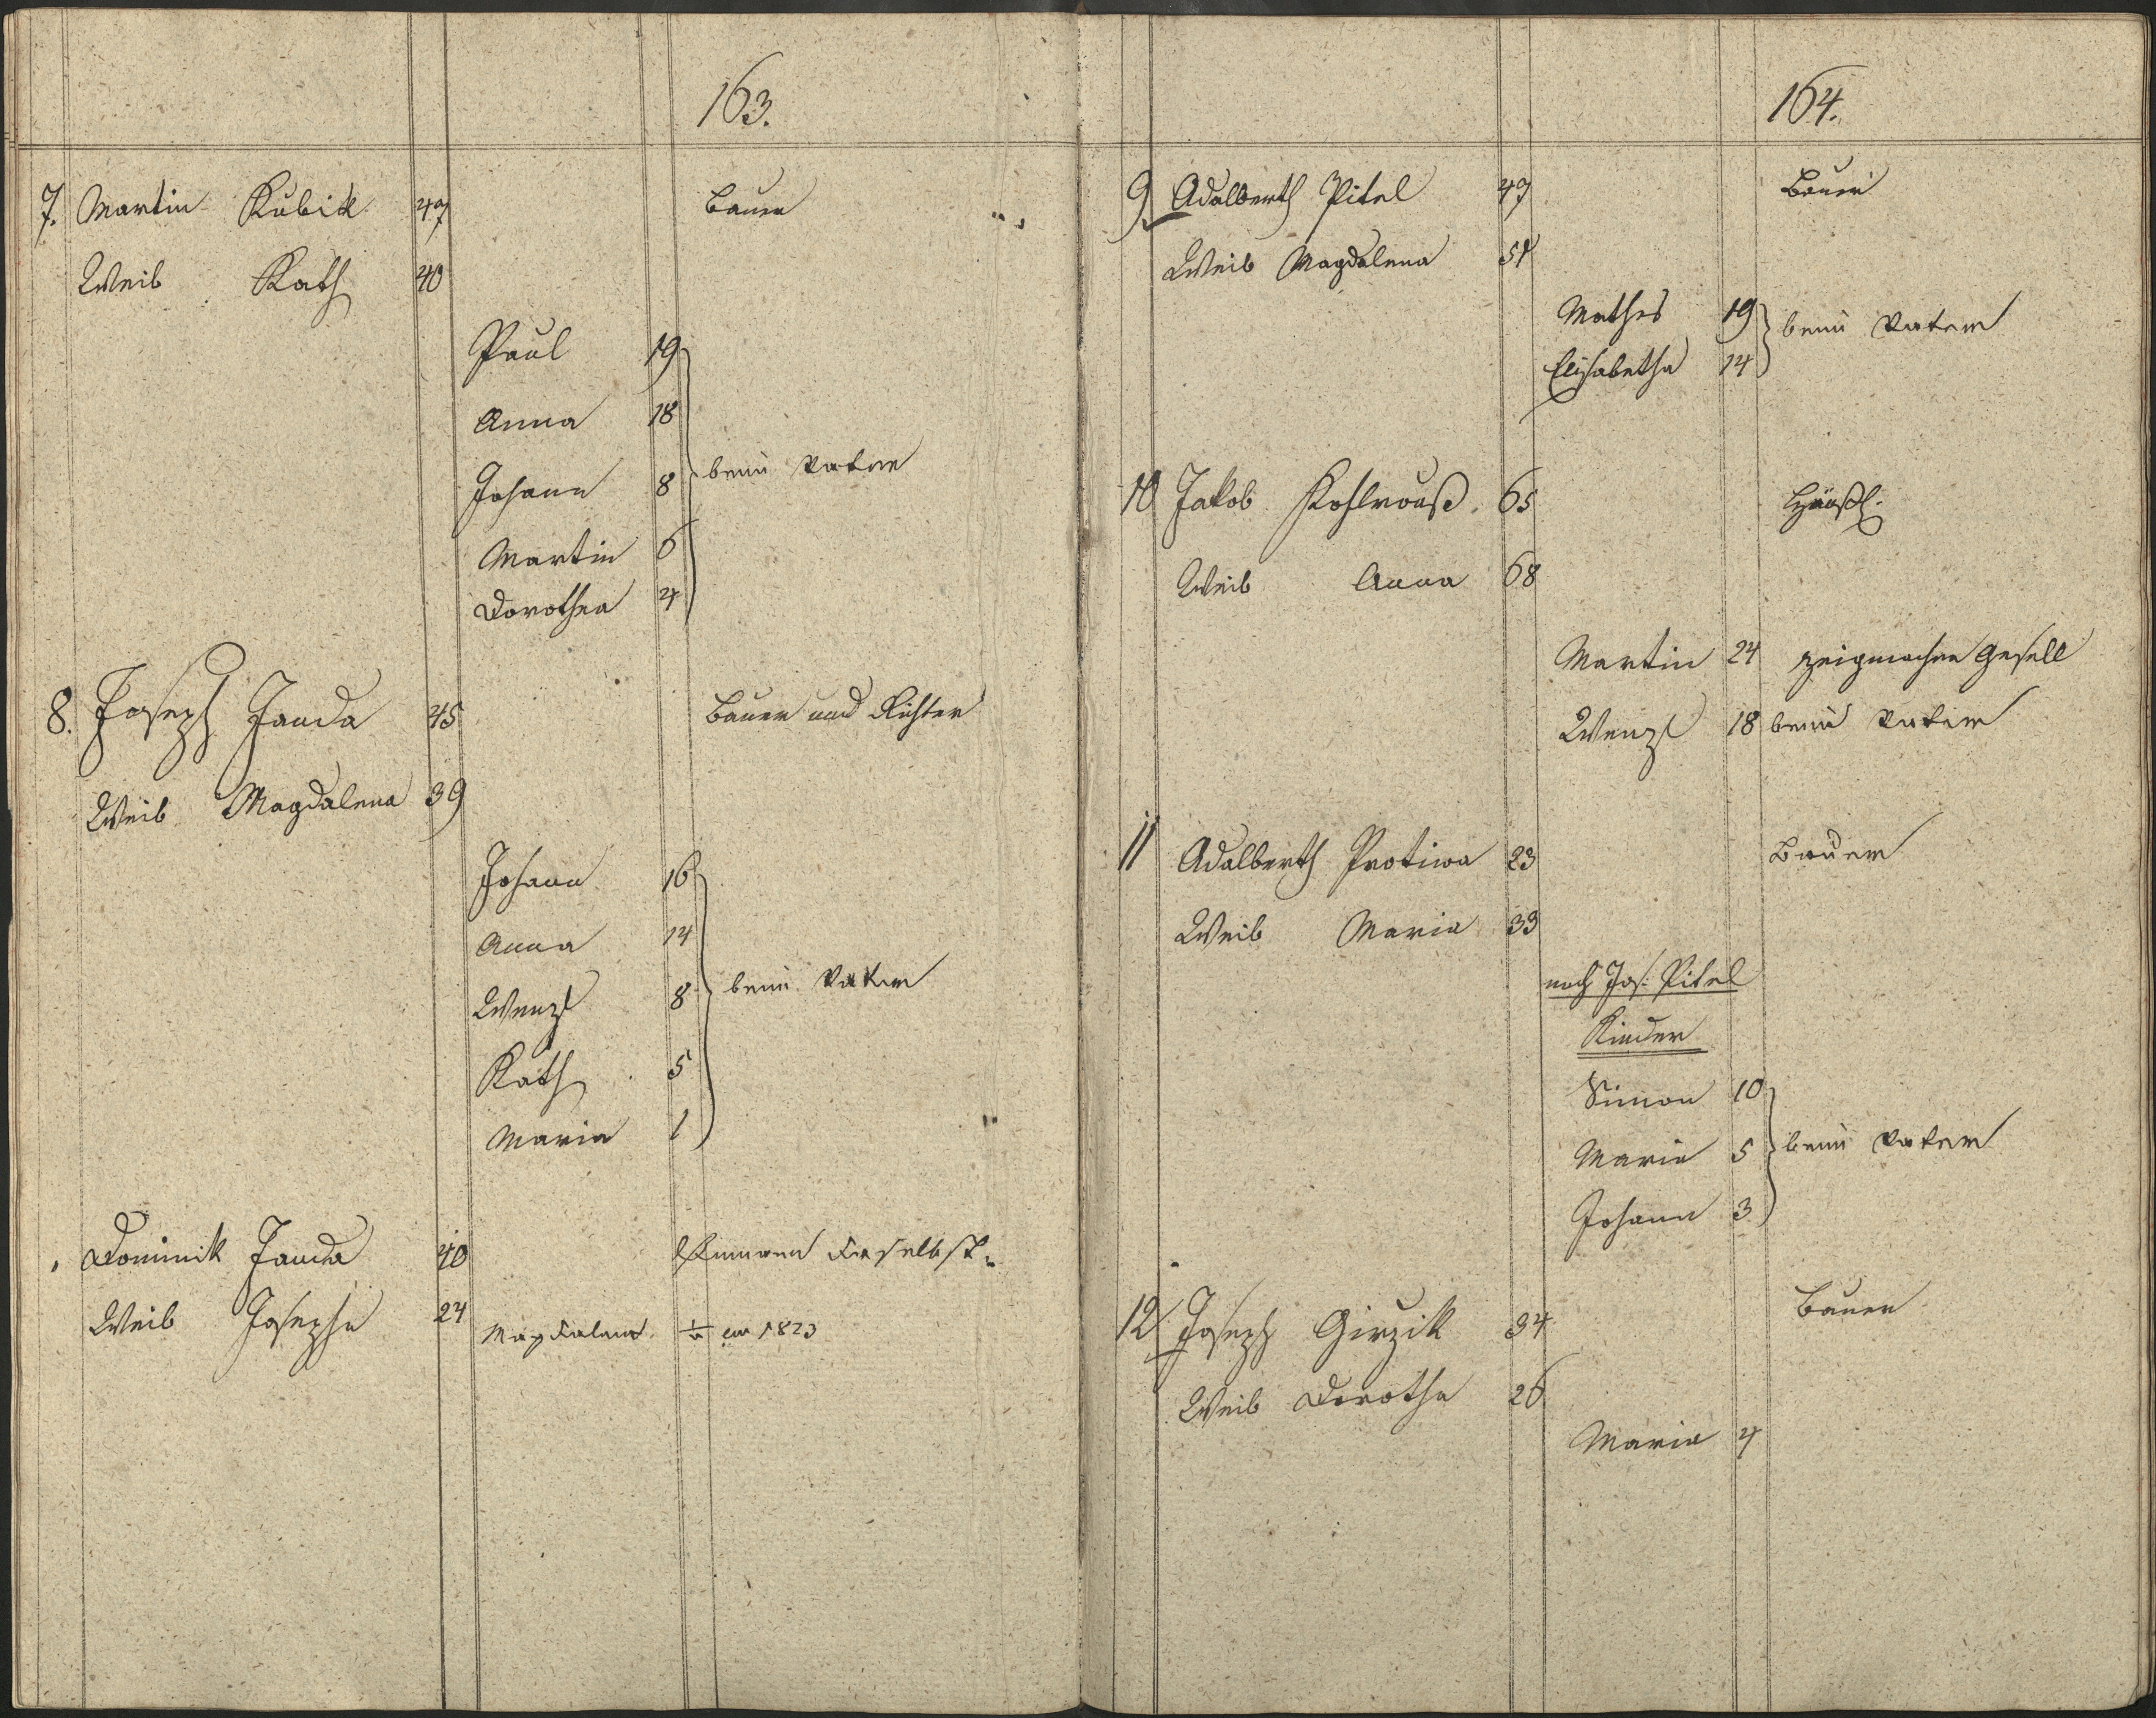 163.
7. Martin Kubik 47 Bauer
Weib Kath 40
Paul 19
Anna 18
Johann 8 beim Vater
Martin 6
Dorothea 4
8. Joseph Janda 45 Bauer und Richter
Weib Magdalena 39
Johann 16
Anna 14
Wenzl 8 beim Vater
Kath 5
Maria 1
Dominik Janda 40 daselbst
Weib Josepha 24 Magdalena 1823
164.
9 Adalberth Pitel 47 Bauer
Weib Magdalena 54
Mathes 19 beim Vater
Elisabetha 14
10 Jakob Kohlrouß 65 Häußl.
Weib Anna 68
Martin 24 zeigmacher Gesell
Wenzl 18 beim Vater
11 Adalberth Protiwa 23 Bauer
Weib Maria 33
nach Jos: Pitel
Kinder
Simon 10
Maria 5 beim Vater
Johann 3
12 Joseph Girzik 34 Bauer
Weib Dorothe 26
Maria 4